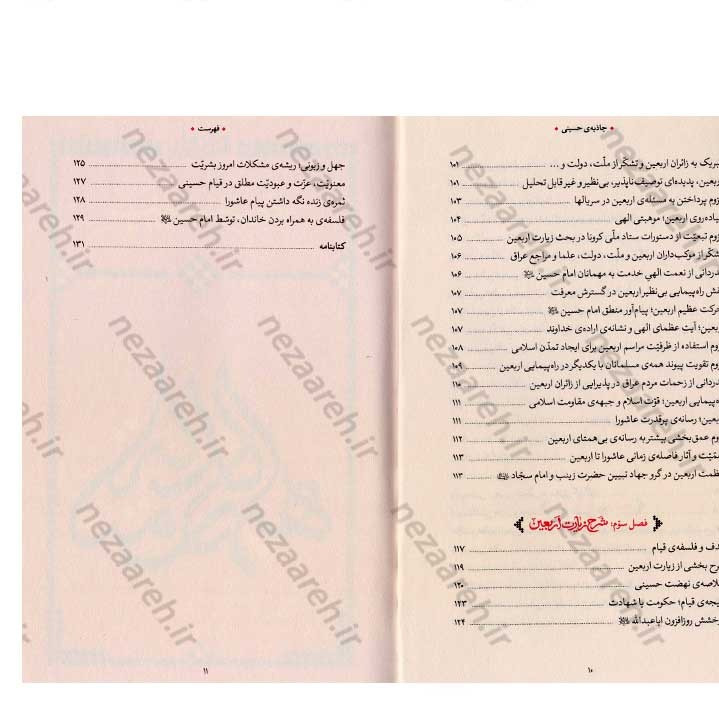 جاذبه‌ی حسینی
بریک به زائران اربعین و تشکّر از ملّت، دولت و ... ۱۰۱
ربعین، پدیده‌ای توصیف‌ناپذیر، بی‌نظیر و غیر قابل تحلیل ۱۰۱
زوم پرداختن به مسئله‌ی اربعین در سریالها ۱۰۳
یاده‌روی اربعین؛ موهبتی الهی ۱۰۴
زوم تبعیّت از دستورات ستاد ملّی کرونا در بحث زیارت اربعین ۱۰۵
شکّر از موکب‌داران اربعین و ملّت، دولت، علما و مراجع عراق ۱۰۶
دردانی از نعمت الهیِ خدمت به مهمانان امام حسین ۱۰۶
قش راه‌پیمایی بی‌نظیر اربعین در گسترش معرفت ۱۰۷
حرکت عظیم اربعین؛ پیام‌آور منطق امام حسین ۱۰۷
ربعین؛ آیت عظمای الهی و نشانه‌ی اراده‌ی خداوند ۱۰۷
زوم استفاده از ظرفیّت مراسم اربعین برای ایجاد تمدّن اسلامی ۱۰۸
زوم تقویت پیوند همه‌ی مسلمانان با یکدیگر در راه‌پیمایی اربعین ۱۰۹
دردانی از زحمات مردم عراق در پذیرایی از زائران اربعین ۱۱۰
ه‌پیمایی اربعین؛ قوّت اسلام و جبهه‌ی مقاومت اسلامی ۱۱۱
بعین؛ رسانه‌ی پرقدرت عاشورا ۱۱۱
وم عمق‌بخشی بیشتر به رسانه‌ی بی‌همتای اربعین ۱۱۲
مّیّت و آثار فاصله‌ی زمانی عاشورا تا اربعین ۱۱۳
ظمت اربعین در گرو جهاد تبیین حضرت زینب و امام سجّاد ۱۱۳
فصل سوّم: شرح زیارت اربعین
دف و فلسفه‌ی قیام ۱۱۷
رح بخشی از زیارت اربعین ۱۱۹
لاصه‌ی نهضت حسینی ۱۲۰
یجه‌ی قیام؛ حکومت یا شهادت ۱۲۳
رخشش روزافزون اباعبدالله ۱۲۴
۱۰
فهرست
جهل و زبونی؛ ریشه‌ی مشکلات امروز بشریّت ۱۲۵
معنویّت، عزّت و عبودیّت مطلق در قیام حسینی ۱۲۷
ثمره‌ی زنده نگه داشتن پیام عاشورا ۱۲۸
فلسفه‌ی به همراه بردن خاندان، توسّط امام حسین ۱۲۹
کتابنامه ۱۳۱
۱۱
nezaareh.ir
nezaareh.ir
nezaareh.ir
nezaareh.ir
nezaareh.ir
nezaareh.ir
nezaareh.ir
nezaareh.ir
nezaareh.ir
nezaareh.ir